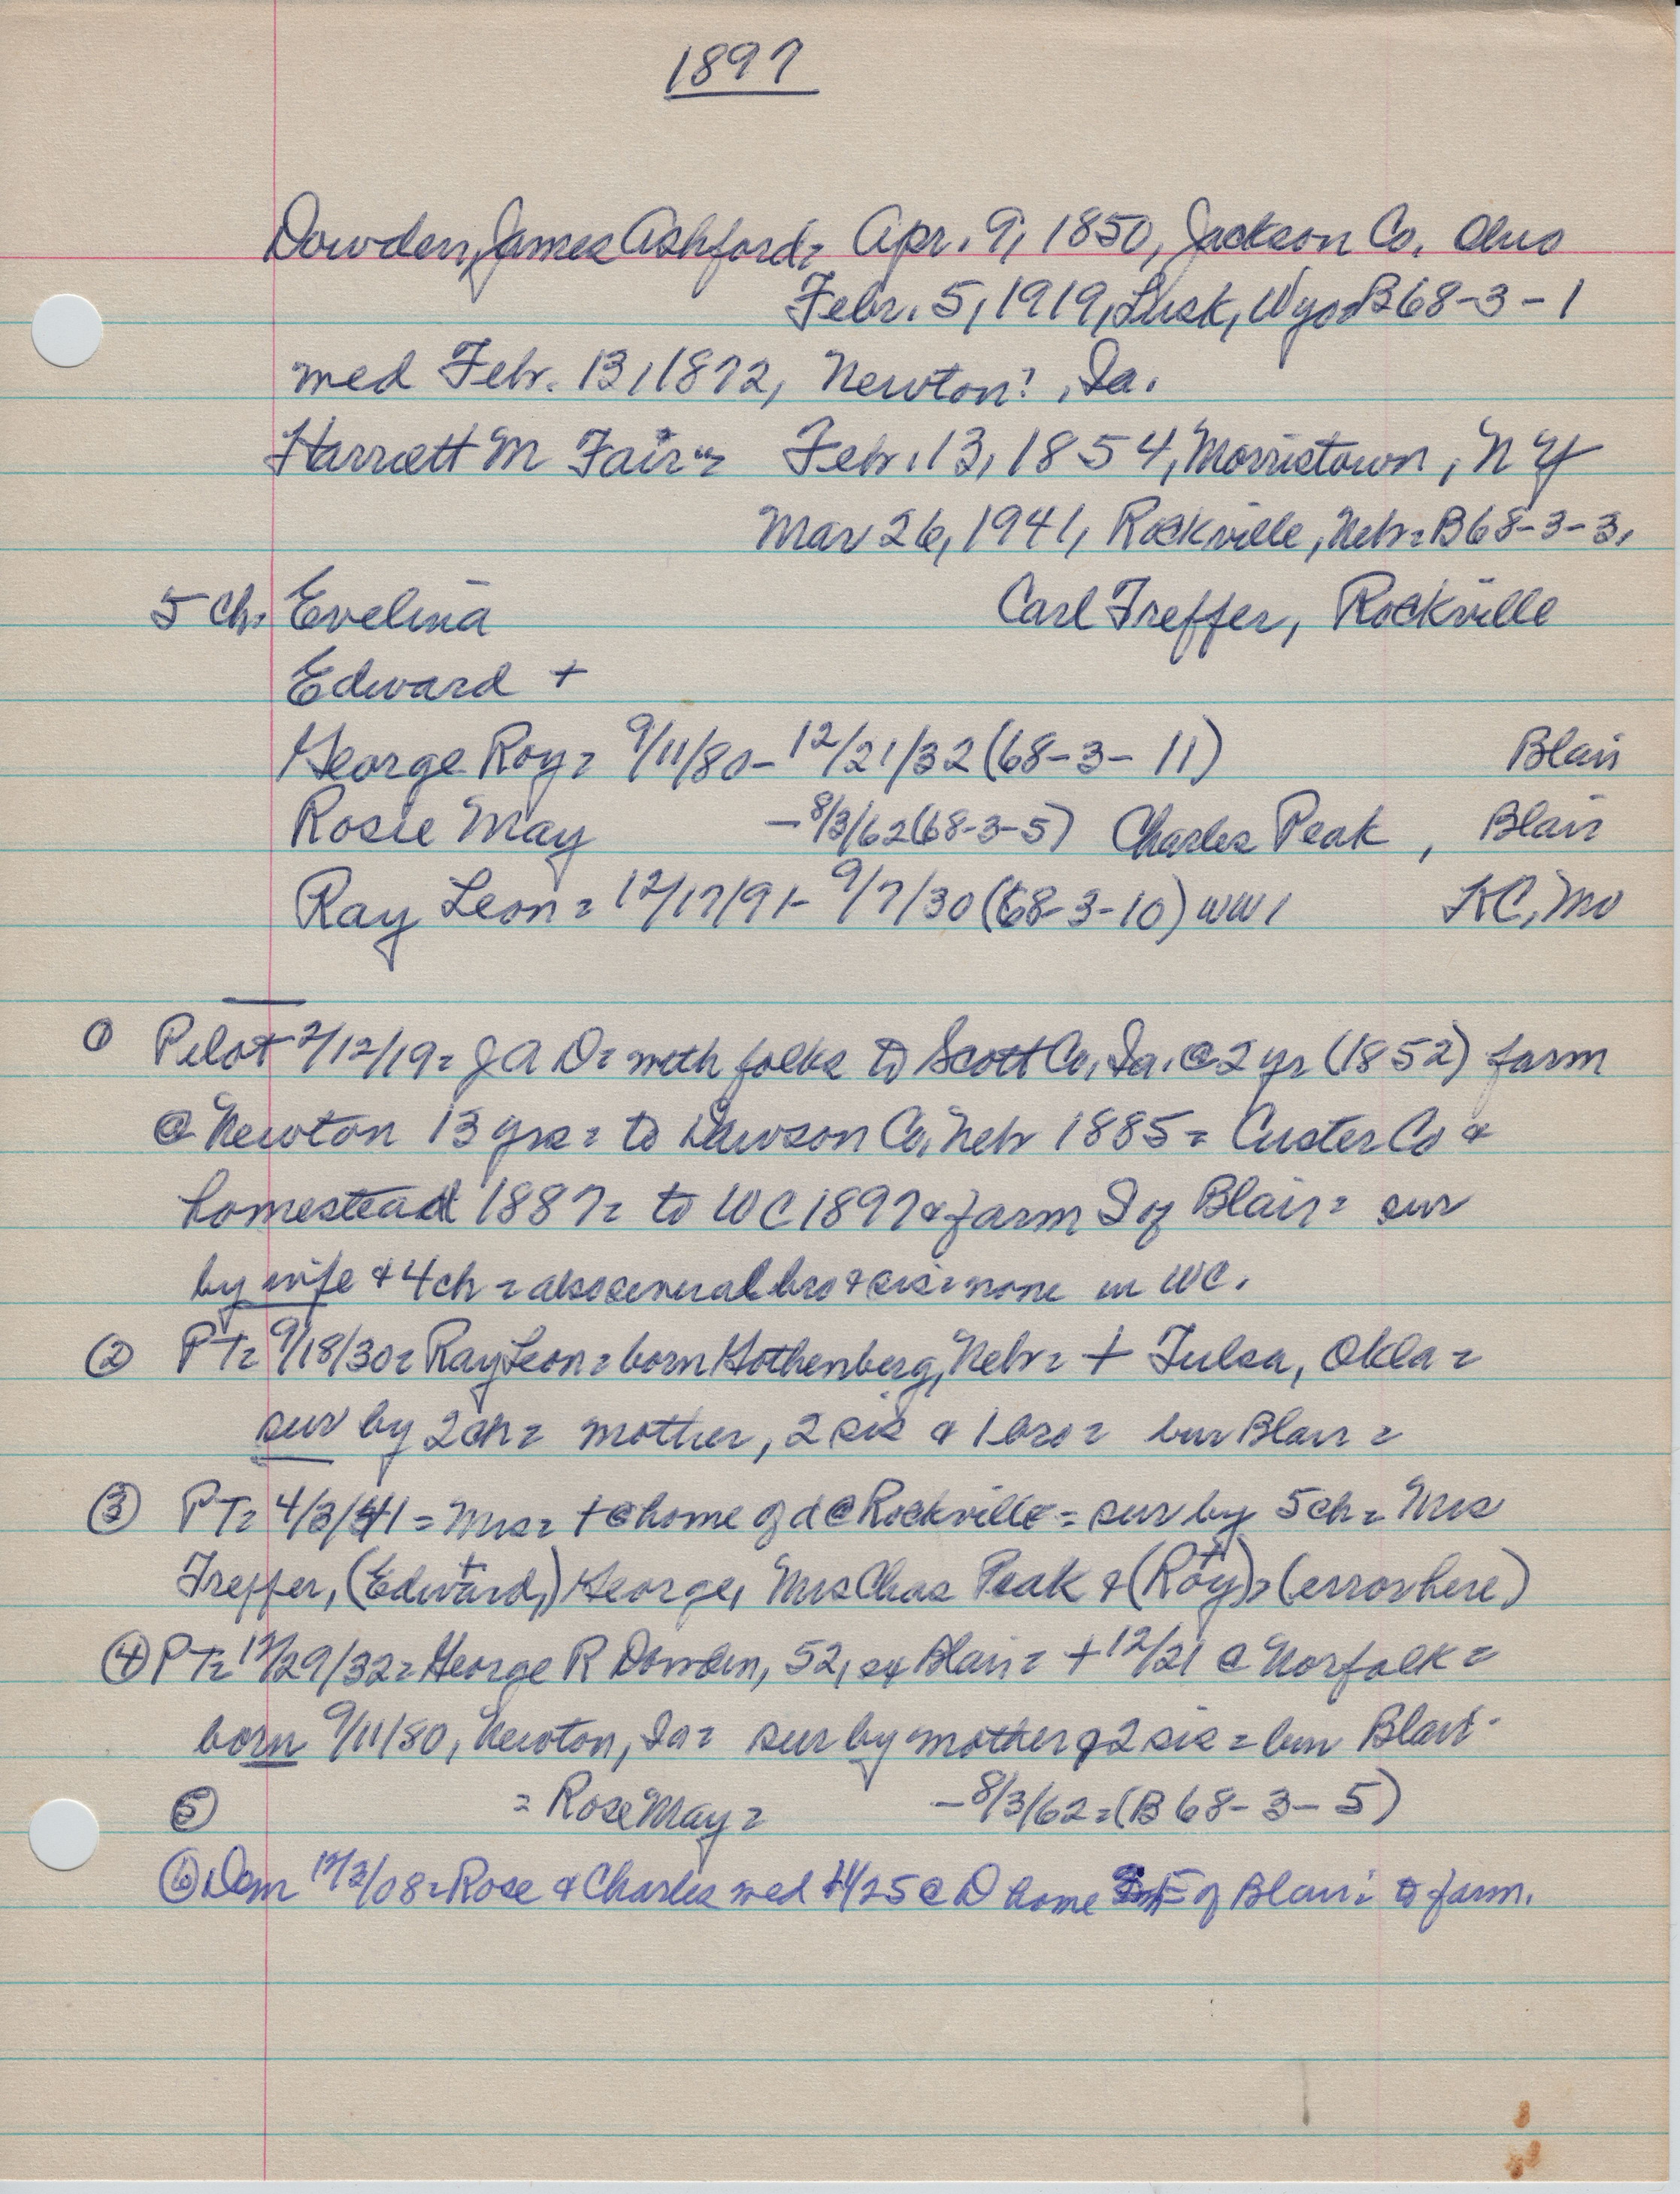 1897
Dowden, James Ashford = Apr. 9, 1850, Jackson Co. Ohio
Febr. 5, 1919, Lusk, Wyo = B68-3-1
med Febr. 13, 1872, Newton?, Ia.
Harriett M Fair = Febr. 13, 1854, Morristown, N Y
Mar 26, 1941, Rockville, Nebr = B68-3-3,
5 ch. Evelina Carl Treffer, Rockville
Edward +
George Roy = 9/11/80 - 12/21/32 (68-3-11) Blair
Rosie May - 8/3/62 (68-3-5) Charles Peak, Blair
Ray Leon = 12/17/91 - 9/7/30 (68-3-10) WW1 KC, Mo
① Pilot 2/12/19 = J A D = with folks to Scott Co, Ia. @ 2 yr (1852) farm
@ Newton 13 yrs = to Dawson Co, Nebr 1885 = Custer Co &
homestead 1887 = to WC 1897 & farm S of Blair = sur
by wife & 4 ch = also several bro & sis = none in WC.
② PT = 9/18/30 = Ray Leon = born Gothenberg, Nebr = + Tulsa, Okla =
sur by 2 ch = mother, 2 sis & 1 bro = bur Blair =
③ PT = 4/3/41 = Mrs = + @ home of d @ Rockville = sur by 5 ch = Mrs
Treffer, (Edward,+) George, Mrs Chas Peak & (Roy)+ = (error here)
④ PT = 12/29/32 = George R Dowden, 52, of Blair = + 12/21 @ Norfolk =
born 9/11/80, Newton, Ia = sur by mother & 2 sis = bur Blair -
⑤ = Rose May = - 8/3/62 = (B 68-3-5)
⑥ Dem 12/3/08 = Rose & Charles med 11/25 @ D home of Blair = to farm.